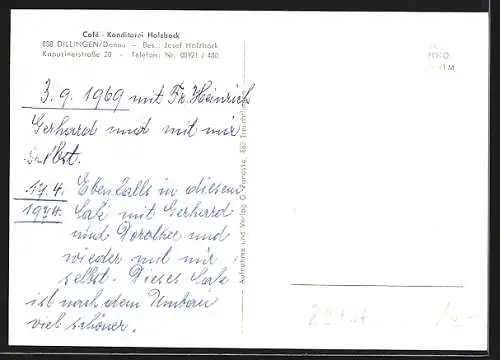 Café - Konditorei Holzbock
888 DILLINGEN/Donau - Bes.: Josef Holzbock
Kapuzinerstraße 20 - Telefon: Nr. 08921 / 480
3. 9. 1969 mit Fr. Heinrich
Gerhard und mit mir
selbst.
17. 4. Ebenfalls in diesem
1974. Café mit Gerhard
und Dorothee und
wieder mit mir
selbst. Dieses Café
ist nach dem Umbau
viel schöner.
Aufnahme und Verlag G.
FOTO